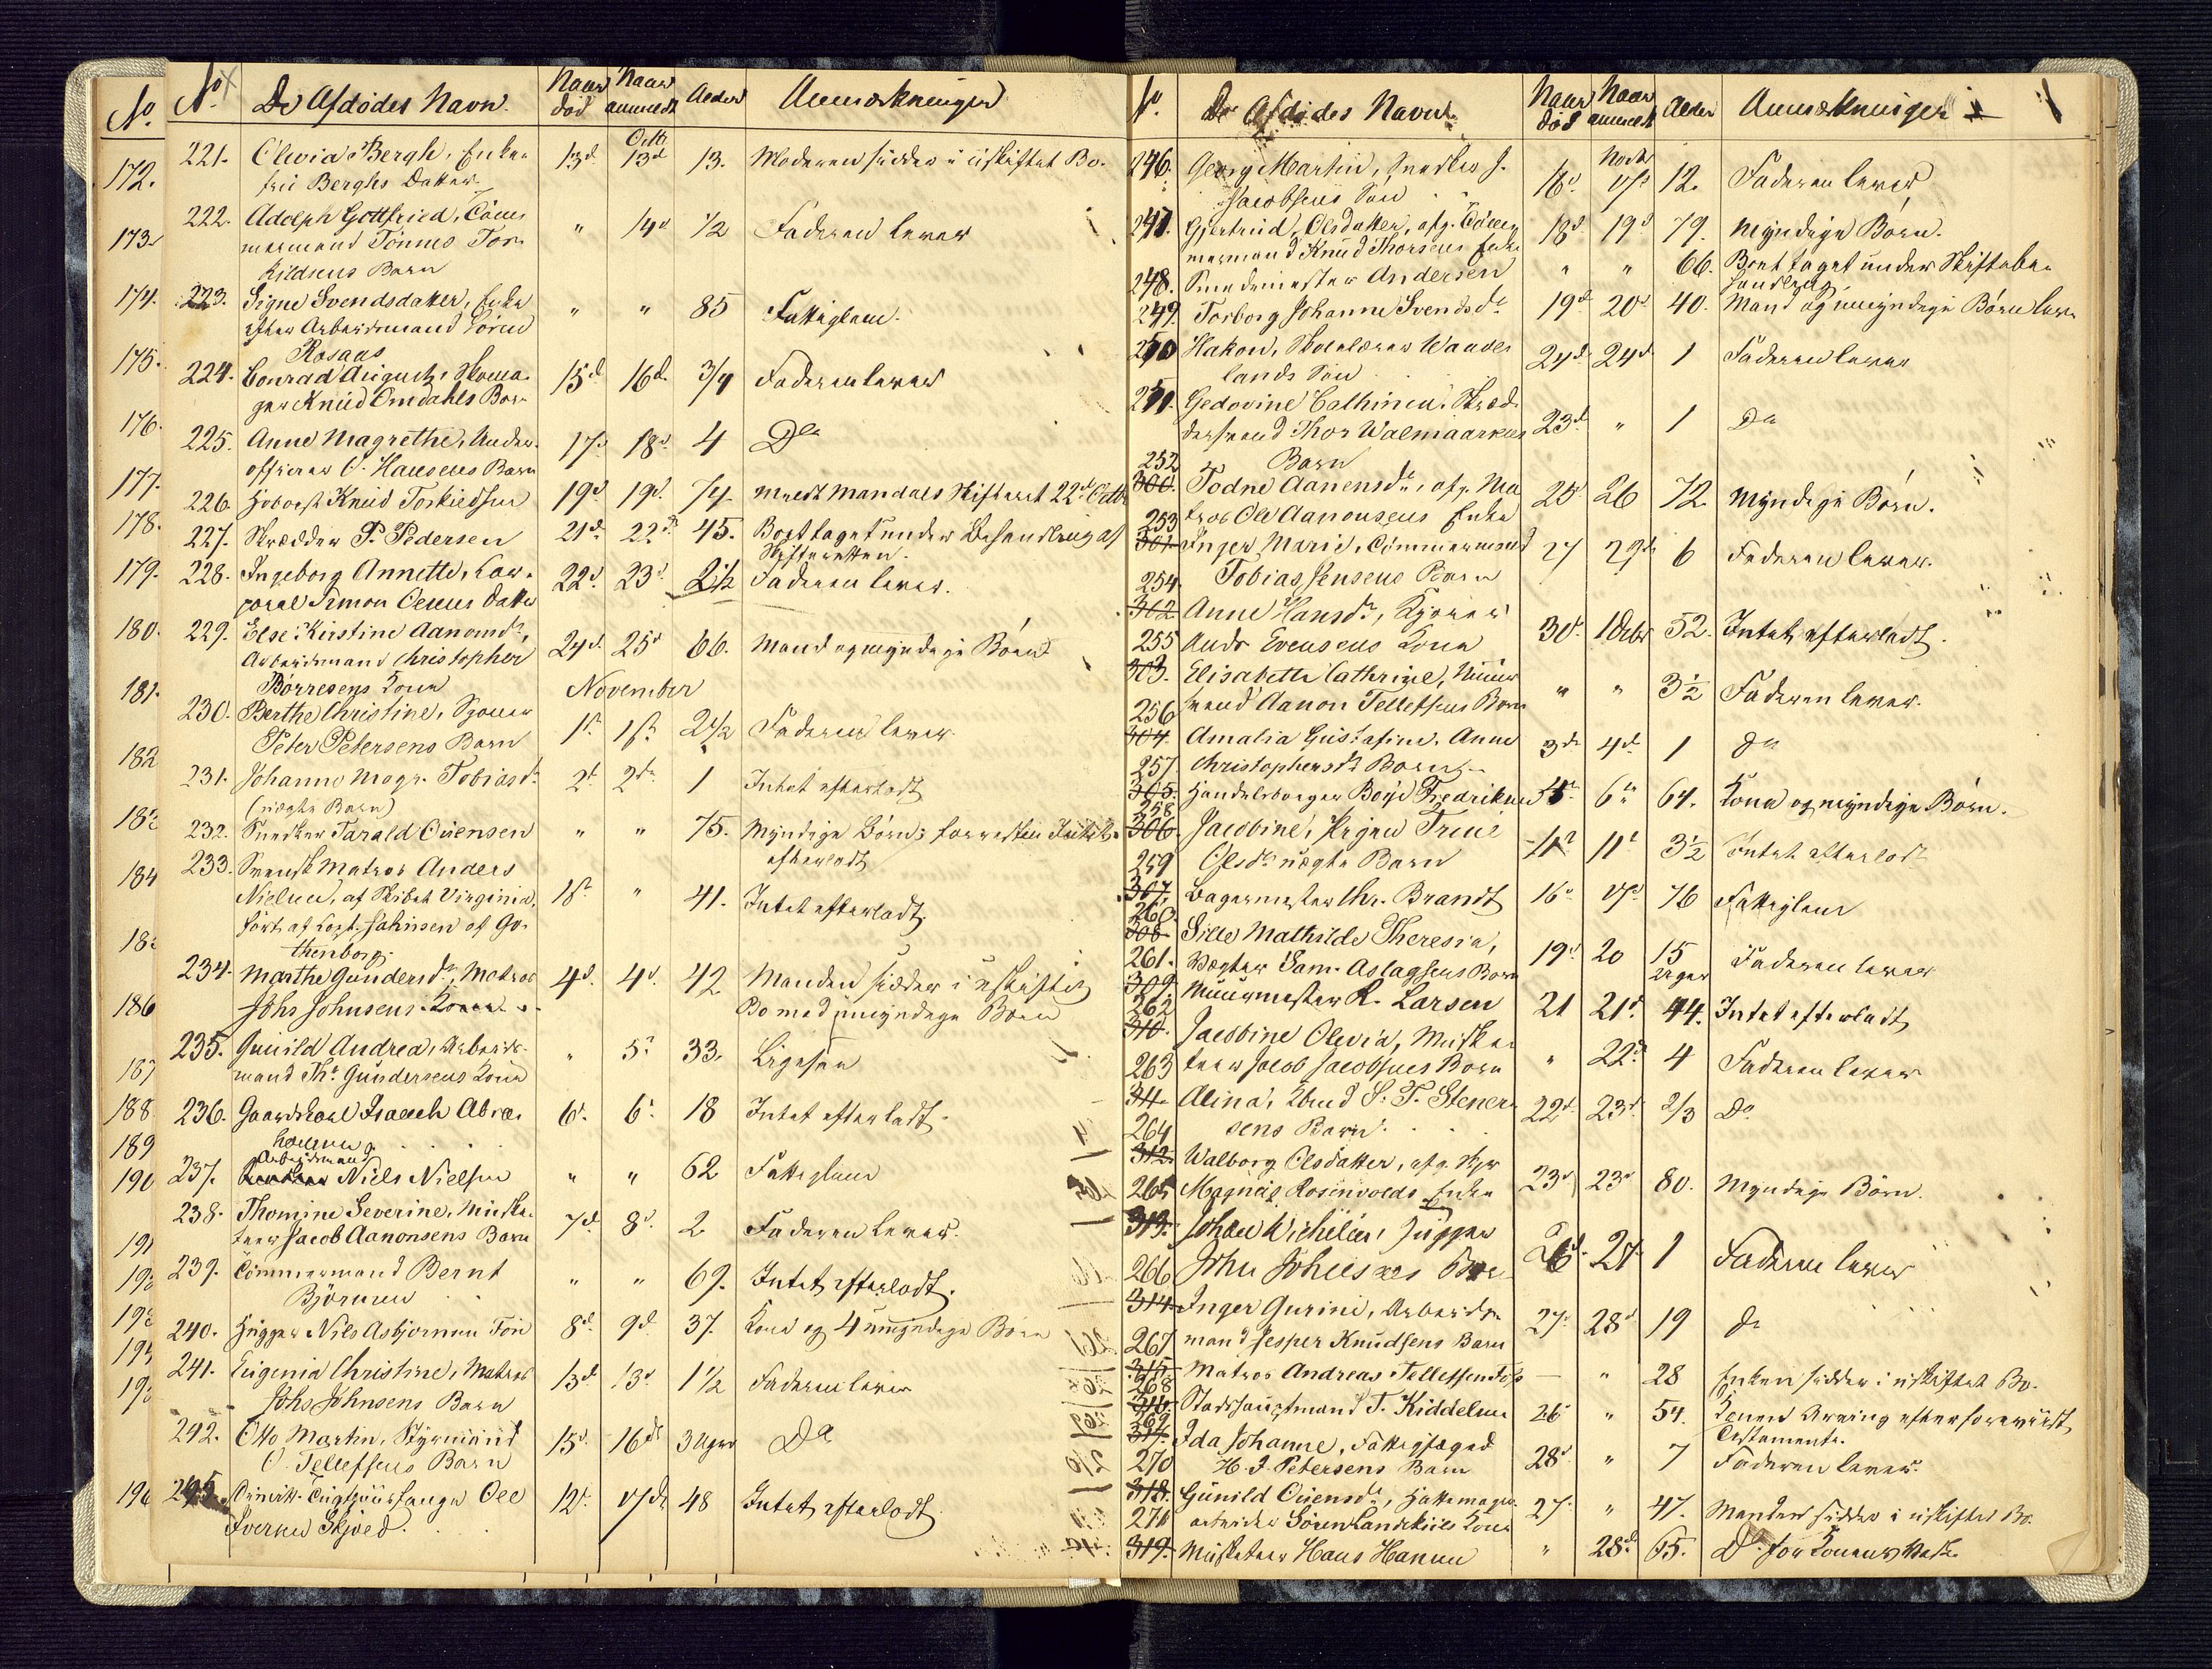 No
172.
173.
174.
175.
176.
177.
178.
179.
180.
181.
182
183
184
186
187
188
189
190
196
No De Afdödes Navn. Naar död Naar anmeldt Alder Anmærkninger
Octb.
221. Olevia Bergh, Enke- 13d 13d 13. Moderen sidder i uskiftet Bo.
frü Berghs Datter.
222. Adolph Gottfried, Töm- " 14d 1/2 Faderen lever
mermand Tönnes Tor-
kildsens Barn
223. Signe Svendsdatter, Enke " " 85 Fattiglem.
efter Arbeidsmand Sören
Rosaas
224. Conrad August, Skoma- 15d 16d 3/4 Faderen lever
ger Knud Omdahls Barn
225. Anne Magrethe, Under- 17d 18d 4 Do
officeer O. Hansens Barn
226. Knud Torkildsen 19d 19d 74 meldt Mandals Skifteret 22d Octbr
227. Skrædder P. Pedersen 21d 22d 45. Boet taget under Behandling af
Skifteretten.
228. Ingeborg Annette, Cor- 22d 23d 2 1/2 Faderen lever.
poral Simon Olsens Datter
229. Else Kirstine Aanonsdr, 24d 25d 66. Mand og myndige Börn
Arbeidsmand Christopher
Börresens Kone
November
230. Berthe Christine, 1st 1st 2 1/2 Faderen lever
Peter Petersens Barn
231. Johanne Magr. Tobiasdr 2d 2d 1 Intet efterladt
(uægte Barn)
232. Snedker Tarald Ouensen " " 75. Myndige Börn; forresten Intet
efterladt
233. Svensk Matros Anders
Nielsen, af Skibet Virginia, 1st " 41. Intet efterladt.
fört af Capt. Johnsen af Go-
thenborg.
234. Marthe Gundersdr, Matros 4d 4d 42 Manden sidder i uskiftet
Johs Johnsens Kone Bo med umyndige Börn
235. Gunild Andrea, Arbeids- " 5d 33. Ligesaa
mand Ths Gundersens Kone
236. Gaardskarl Isaach Abra- 6d 6d 18 Intet efterladt.
hamsen
Arbeidsmand
237. Niels Nielsen " " 62 Fattiglem
238. Thomine Severine, Muske- 7d 8d 2 Faderen lever.
teer Jacob Aanonsens Barn
239. Tömmermand Bernt " " 69. Intet efterladt.
Björnsen
240. Hugger Nils Asbjornsen Foss 8d 9d 37. Kone og 4 umyndige Börn
241. Eugenia Christine, Matros 13d 13d 1 1/2 Faderen lever
Johs Johnsens Barn
242. Otto Martin, Styrmand 15d 16d 3 Uger Do
O. Tellefsens Barn
245. Tugthuusfange Ole 12d 17d 48 Intet efterladt.
Iversen Skjoed.
No De Afdödes Navn. Naar död Naar anmeldt Alder Anmærkninger
Novbr
246. Georg Martin, Snedker J. 16d 17d 12. Faderen lever
Jacobsens Sön
247. Gjertrud Olsdatter, afg. Töm- 18d 19d 79. Myndige Börn.
mermand Knud Thorsens Enke
248. Smedmester Andersen " " 66. Boet taget under Skiftebe-
handling
249. Torborg Johanne Svendsdr 19d 20d 40. Mand og umyndige Börn lever
250 Hakon, Skolelærer Waades- 24d 24d 1 Faderen lever
lands Sön
251. Gedovine Cathinca, Skræd- 23d " 1 Do
dersvend Thor Walmaarkens
Barn
252 300. Todne Aanensdr, afg. Ma- 25d 26 72 Myndige Börn.
tros Ole Aanonsens Enke
253 301. Inger Marie, Tömmermand 27 29d 6 Faderen lever.
Tobias Jensens Barn
254. 302 Anne Hansdr, 30d 1 Decbr 52. Intet efterladt.
Ands Evensens Kone
255 303. Elisabette Cathrine, Muur- " " 3 1/2 Faderen lever.
svend Aanon Tellefsens Barn
256 304. Amalia Gustafine, Anne 3d 4d 1 do
Christophersdr Barn
257. 305. Handelsborger Boije Fredriksen 5d 6d 64. Kone og myndige Börn.
258 306. Jacobine, Pigen Trine 11d 11d 3 1/2 Intet efterladt
Olsdr uægte Barn
259 307. Bagermester Chr. Brandt 16d 17d 76 Fattiglem
260. 308 Sille Mathilde Theresia, 19d 20 15 Uger Faderen lever
Vægter Sam. Aslagsens Barn
261. 309. Muurmester R. Larsen 21 21d 44. Intet efterladt
262 310. Jacobine Olevia, Muske- " 22d 4 Faderen lever
teer Jacob Jacobsens Barn
263 311. Alina, S. T. Stener- 22d 23d 2/3 Do
sens Barn.
264 312. Walborg Olsdatter, afg. 23d 23d 80. Myndige Börn.
Magnus Rosenvolds Enke
265 313. Johan Wilhelm, Hugger 26d 27 1 Faderen lever
John Johnsens Barn
266 314. Inger Gurine, Arbeids- 27d 28d 19 do
mand Jesper Knudsens Barn
267 315. Matros Andreas Tellefsen Foss — " 28 Enken sidder i uskiftet Bo.
268 316. Stadshauptmand T. Kiddelsen 26 " 54. Konen Arving efter foreviist
Testamente.
269 317. Ida Johanne, Fattigfoged 28d " 7 Faderen lever.
H. J. Petersens Barn
270 318. Gunild Ouensdr, Hattemager- 27. " 47. Manden sidder i uskiftet Bo.
arbeider Sören Landskiils Kone
271 319. Musketeer Hans Hansen " 28d 65. Do